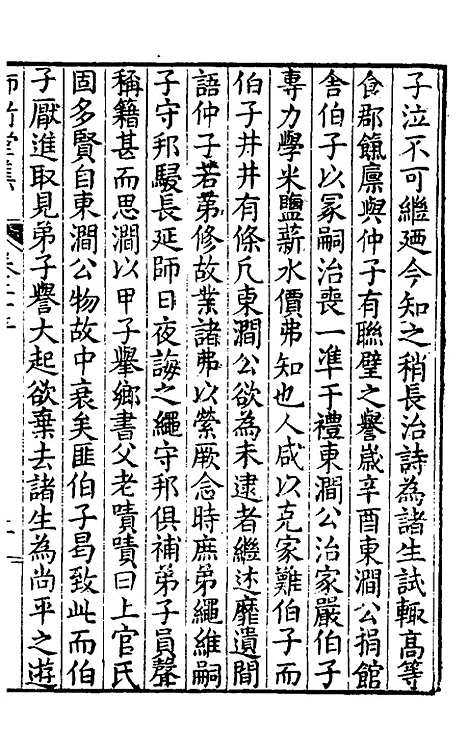 子泣不可繼廼今知之稍長治詩為諸生試輙高等
食郡餼廪與仲子有聯璧之譽嵗辛酉東澗公捐館
舍伯子以冢嗣治喪一準于禮東澗公治家嚴伯子
專力學米鹽薪水價弗知也人咸以克家難伯子而
伯子井井有條凡東澗公欲為未逮者繼述靡遺間
語仲子若第修故業諸弗以縈厥念時庶弟繩維嗣
子守邦騣長延師日夜誨之繩守邦俱補弟子員聲
稱籍甚而思澗以甲子舉鄉書父老嘖嘖曰上官氏
固多賢自東澗公物故中衰矣匪伯子曷致此而伯
子厭進取見弟子譽大起欲棄去諸生為尚平之遊
師竹堂集